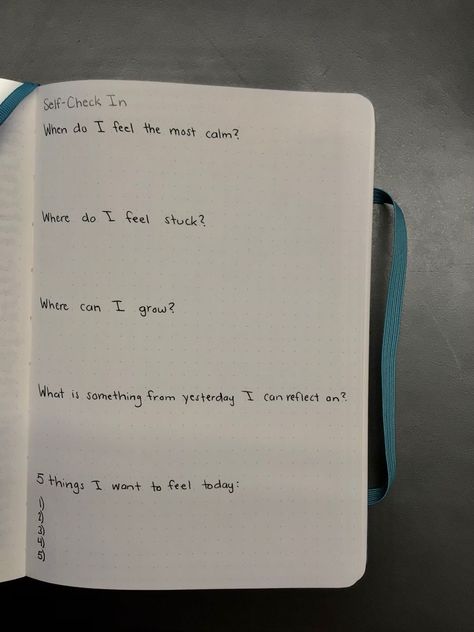 Self-Check In
When do I feel the most calm?
Where do I feel stuck?
Where can I grow?
What is something from yesterday I can reflect on?
5 things I want to feel today:
1)
2)
3)
4)
5)